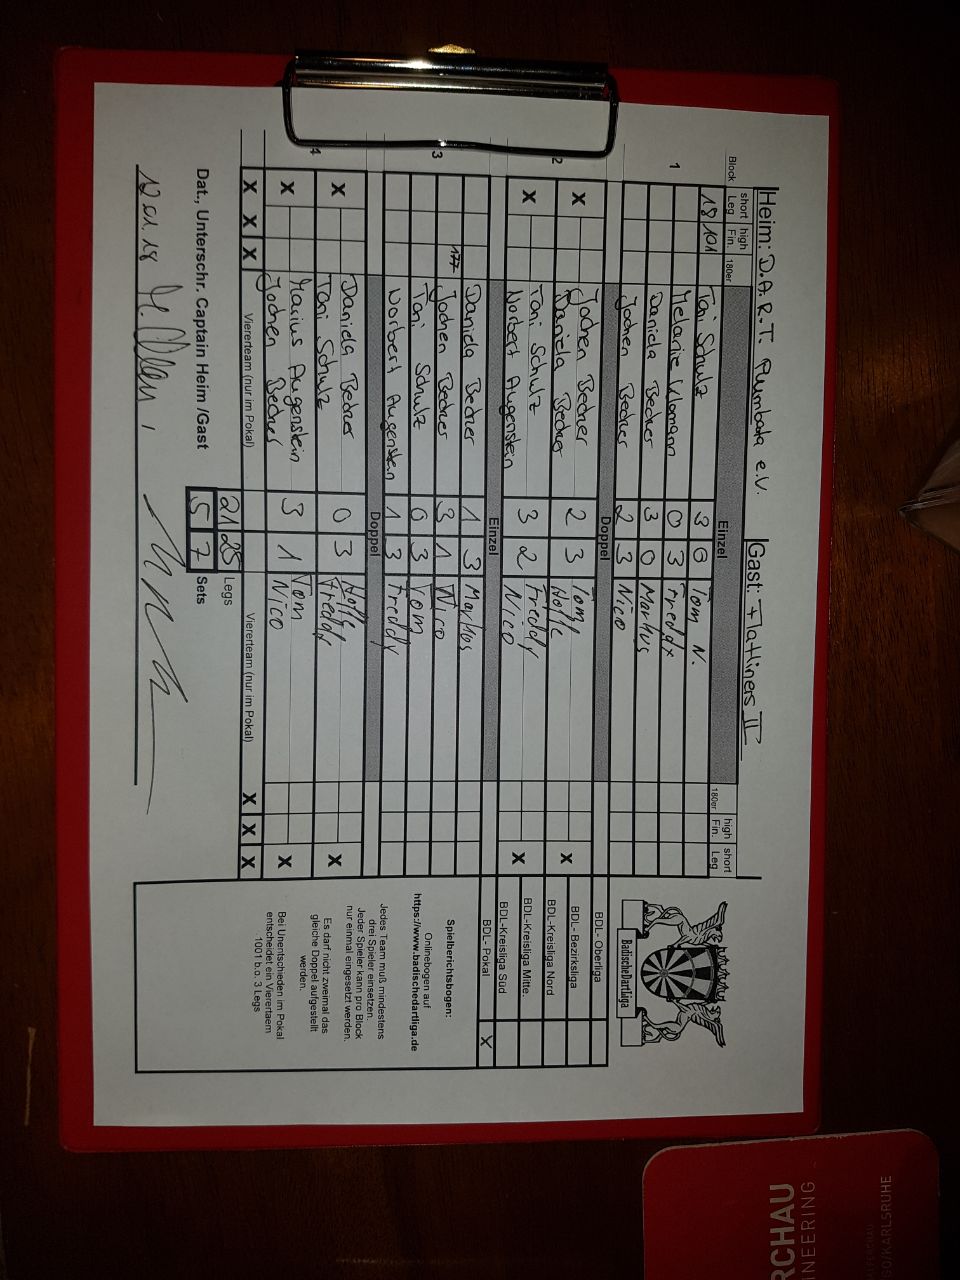 Heim: D.A.R.T. Rumbala e.V. Gast: Flatliners II
Block short Leg high Fin. 180er Einzel 180er high Fin. short Leg
1
18 101 Toni Schulz 3 0 Tom N.
Melanie Klomann 0 3 Freddy
Daniela Bedner 3 0 Markus
Jochen Bedner 2 3 Nico
Doppel
2
X Jochen Bedner 2 3 Tom X
Daniela Bedner Holle
X Toni Schulz 3 2 Freddy X
Norbert Augenstein Nico
Einzel
3
Daniela Bedner 1 3 Markus
177 Jochen Bedner 3 1 Nico
Toni Schulz 0 3 Tom
Norbert Augenstein 1 3 Freddy
Doppel
4
X Daniela Bedner 0 3 Holle X
Toni Schulz Freddy
X Marius Augenstein 3 1 Tom X
Jochen Bedner Nico
X X X Viererteam (nur im Pokal) Viererteam (nur im Pokal) X X X
21 25 Legs
5 7 Sets
Dat., Unterschr. Captain Heim /Gast
12.01.18
BadischeDartLiga
BDL- Oberliga
BDL - Bezirksliga
BDL-Kreisliga Nord
BDL-Kreisliga Mitte
BDL-Kreisliga Süd
BDL- Pokal X
Spielberichtsbogen:
Onlinebogen auf
https://www.badischedartliga.de
Jedes Team muß mindestens
drei Spieler einsetzen.
Jeder Spieler kann pro Block
nur einmal eingesetzt werden.
Es darf nicht zweimal das
gleiche Doppel aufgestellt
werden.
Bei Unentschieden im Pokal
entscheidet ein Viererteam
1001 b.o. 3 Legs
RCHAU
INEERING
SO/KARLSRUHE